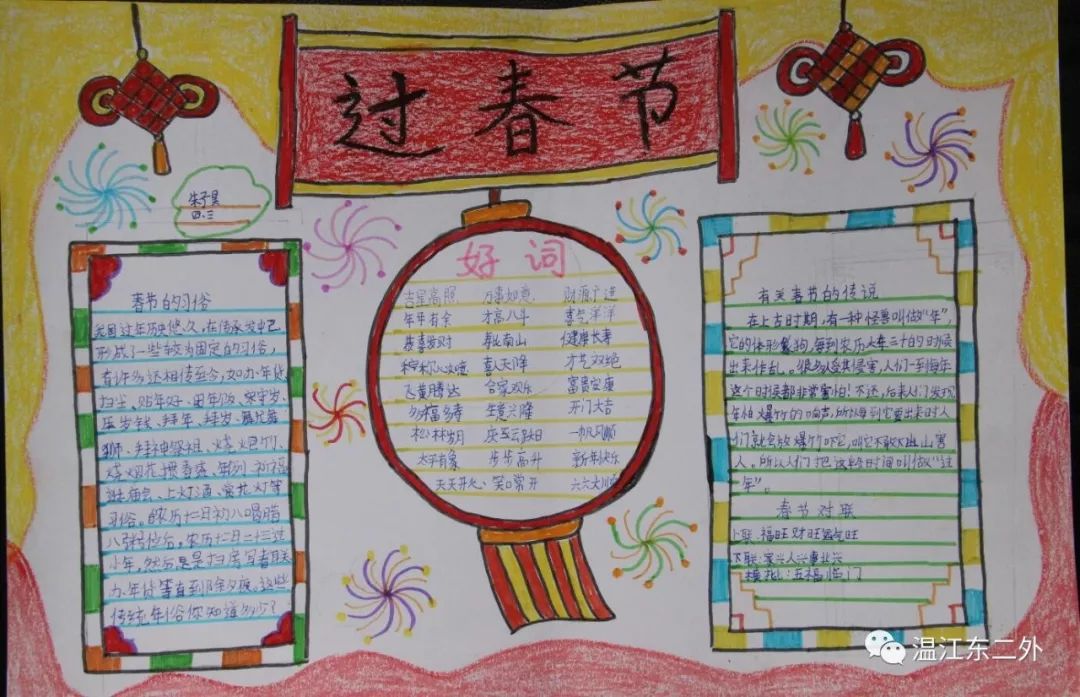 过春节
朱子昊
四、三
春节的习俗
我国过年历史悠久,在传承发中已
形成了一些较为固定的习俗,
有许多还相传至今,如办年货、
扫尘、贴年红、团年饭、守岁、
压岁钱、拜年、拜岁、舞龙舞
狮、拜神祭祖、烧炮竹、
烧烟花掼春盛、年例、初福
庙会、上灯酒、赏花灯等
习俗。农历十二月初八喝腊
八粥后,农历十二月二十三过
小年,然后是扫房写春联
办年货等直到除夕夜。这些
传统年俗你知道多少?
好词
吉星高照 万事如意 财源广进
年年有余 才高八斗 喜气洋洋
恭喜发财 寿比南山 健康长寿
称心 喜从天降 才艺双绝
飞黄腾达 合家欢乐 富贵安康
多福多寿 生意兴隆 开门大吉
松林岁月 庆云 一帆风顺
太平有象 步步高升 新年快乐
天天开心、笑口常开 六六大顺
有关春节的传说
在上古时期,有一种怪兽叫做“年”,
它的体形,每到农历年三十的时候
出来作乱。很多人受其侵害,人们一到每年
这个时候都非常害怕!不过,后来人们发现
年怕爆竹的响声,所以每到它要出来时人
们就会放爆竹吓它,叫它不敢出山害
人。所以人们把这段时间叫做“过
年”。
春节对联
上联:福旺财旺运气旺
下联:家兴人兴事业兴
横批:五福临门
温江东二外